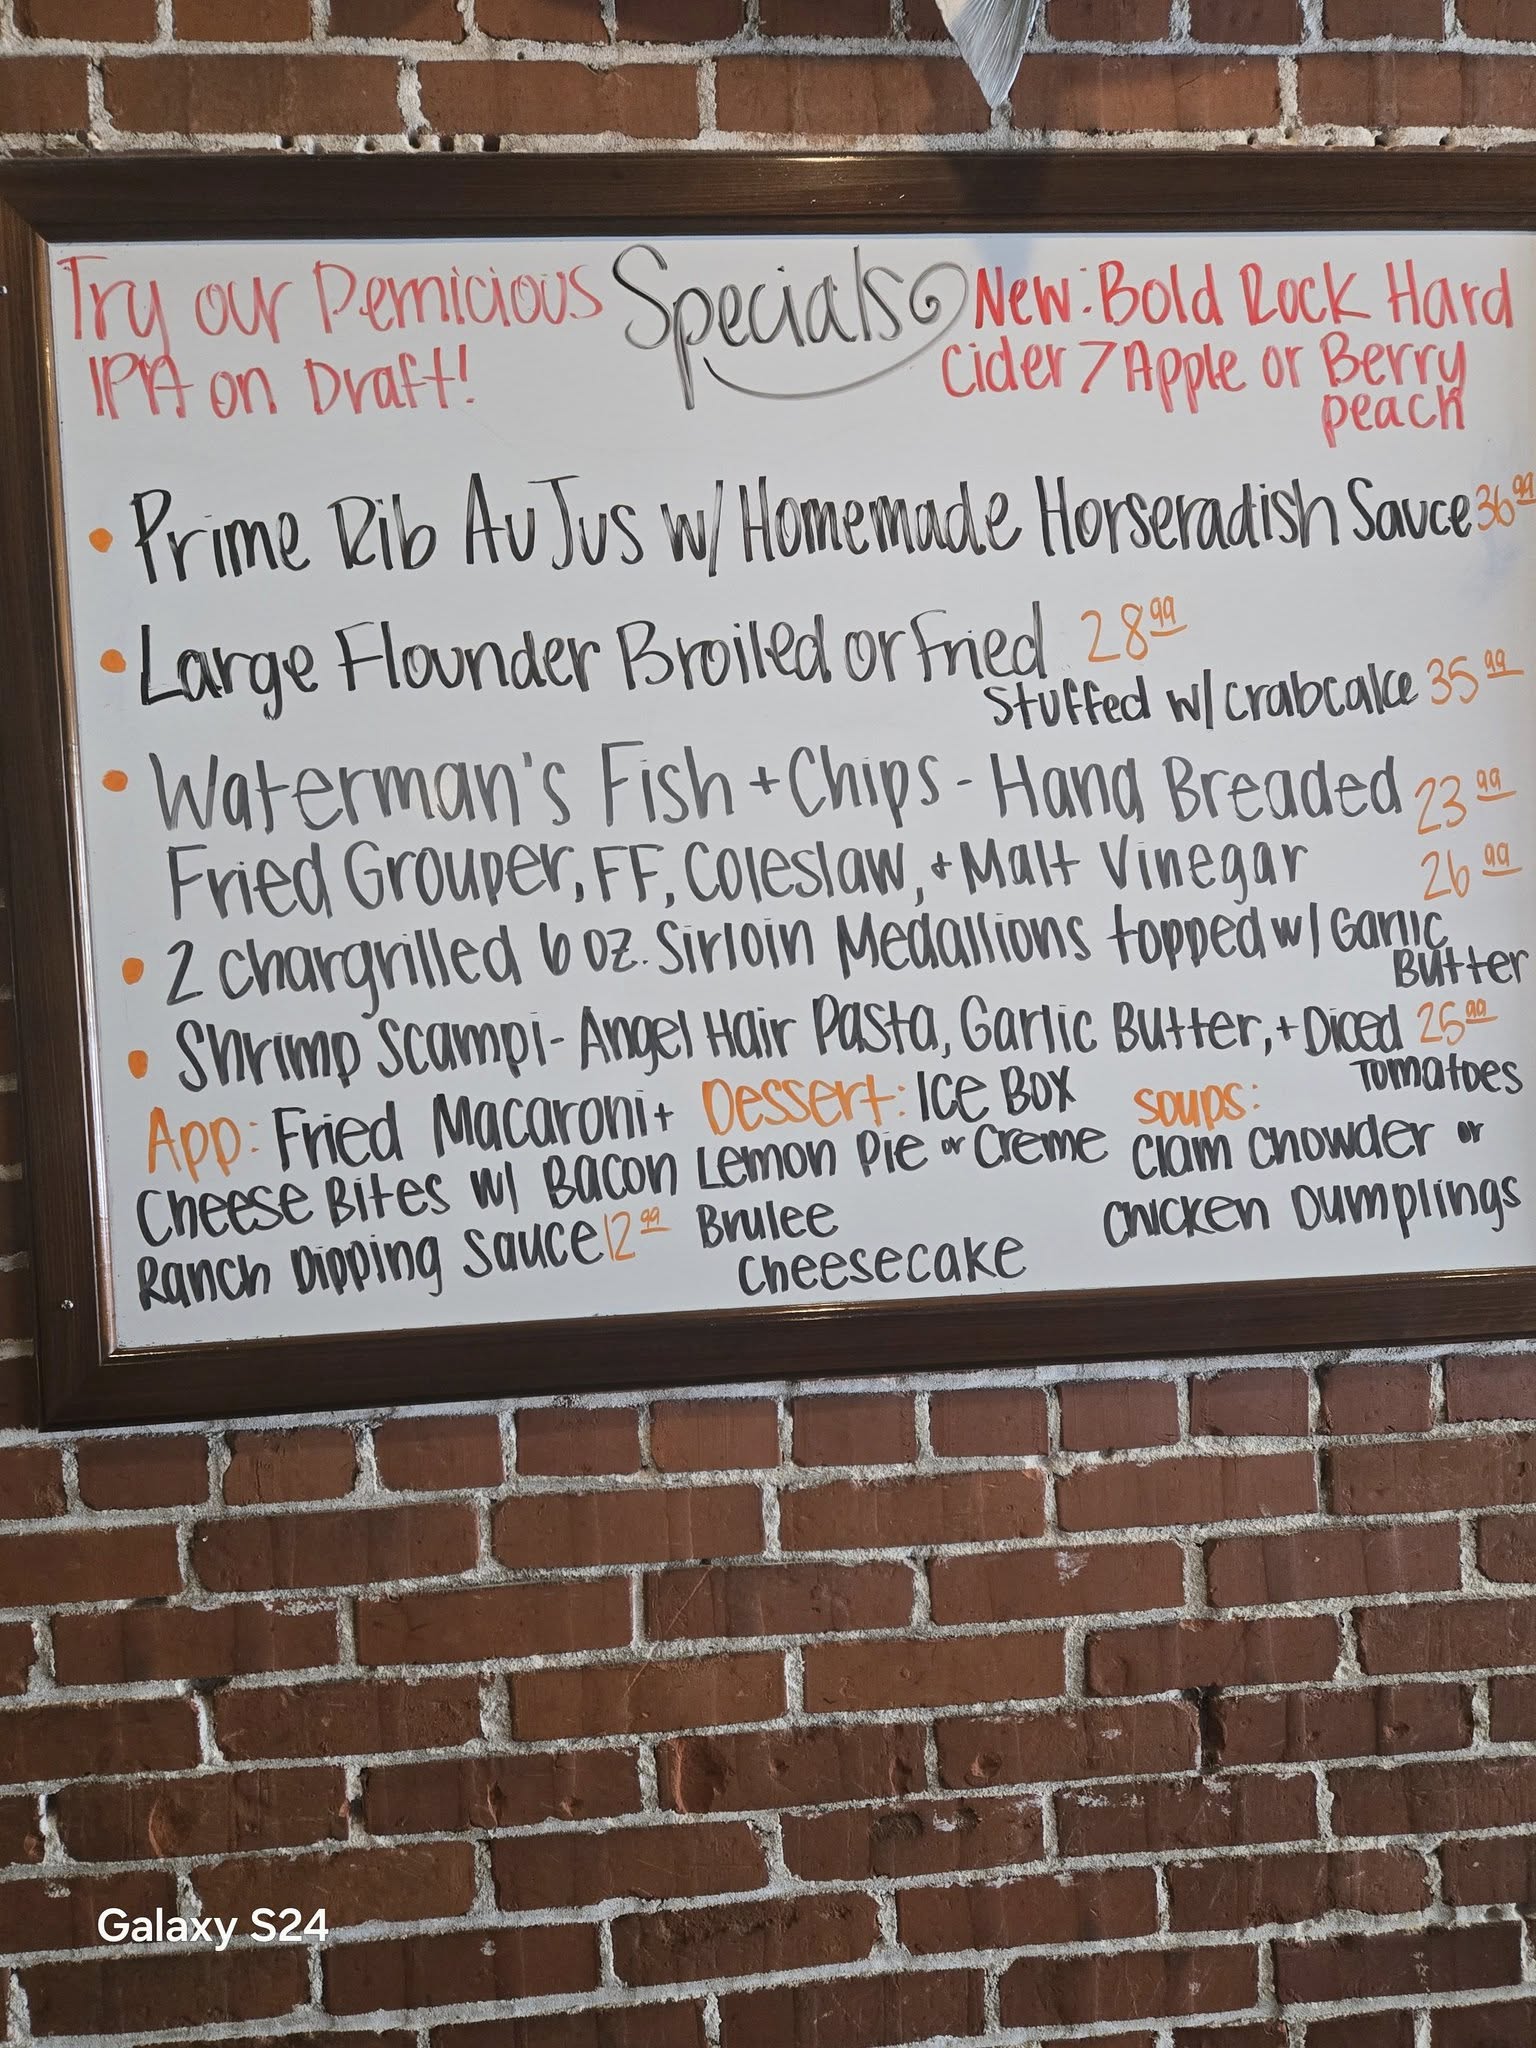 Try our Pernicious
IPA on Draft!
Specials
New: Bold Rock Hard
Cider > Apple or Berry
peach
• Prime Rib Au Jus w/ Homemade Horseradish Sauce 36 99
• Large Flounder Broiled or Fried 28 99
Stuffed w/ crabcake 35 99
• Waterman's Fish + Chips - Hand Breaded 23 99
Fried Grouper, FF, Coleslaw, + Malt Vinegar
26 99
• 2 chargrilled 6 oz. Sirloin Medallions topped w/ Garlic
Butter
• Shrimp Scampi - Angel Hair Pasta, Garlic Butter, + Diced 25 99
Tomatoes
App: Fried Macaroni +
Cheese Bites w/ Bacon
Ranch Dipping Sauce 12 99
Dessert: Ice Box
Lemon Pie or Creme
Brulee
Cheesecake
Soups:
Clam Chowder or
Chicken Dumplings
Galaxy S24